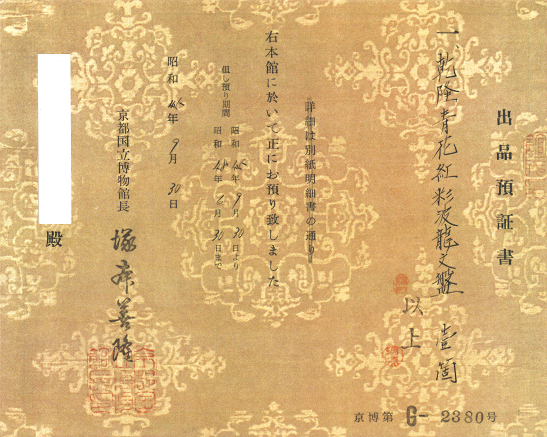 出品預証書
一、乾隆青花紅彩波龍文盤 壹箇
以上
詳細は別紙明細書の通り
右本館に於いて正にお預り致しました
但し預り期間
昭和 年9月30日より
昭和 年 月30日まで
昭和 年9月30日
京都国立博物館長 塚本善隆
殿
京博第 G-2380号